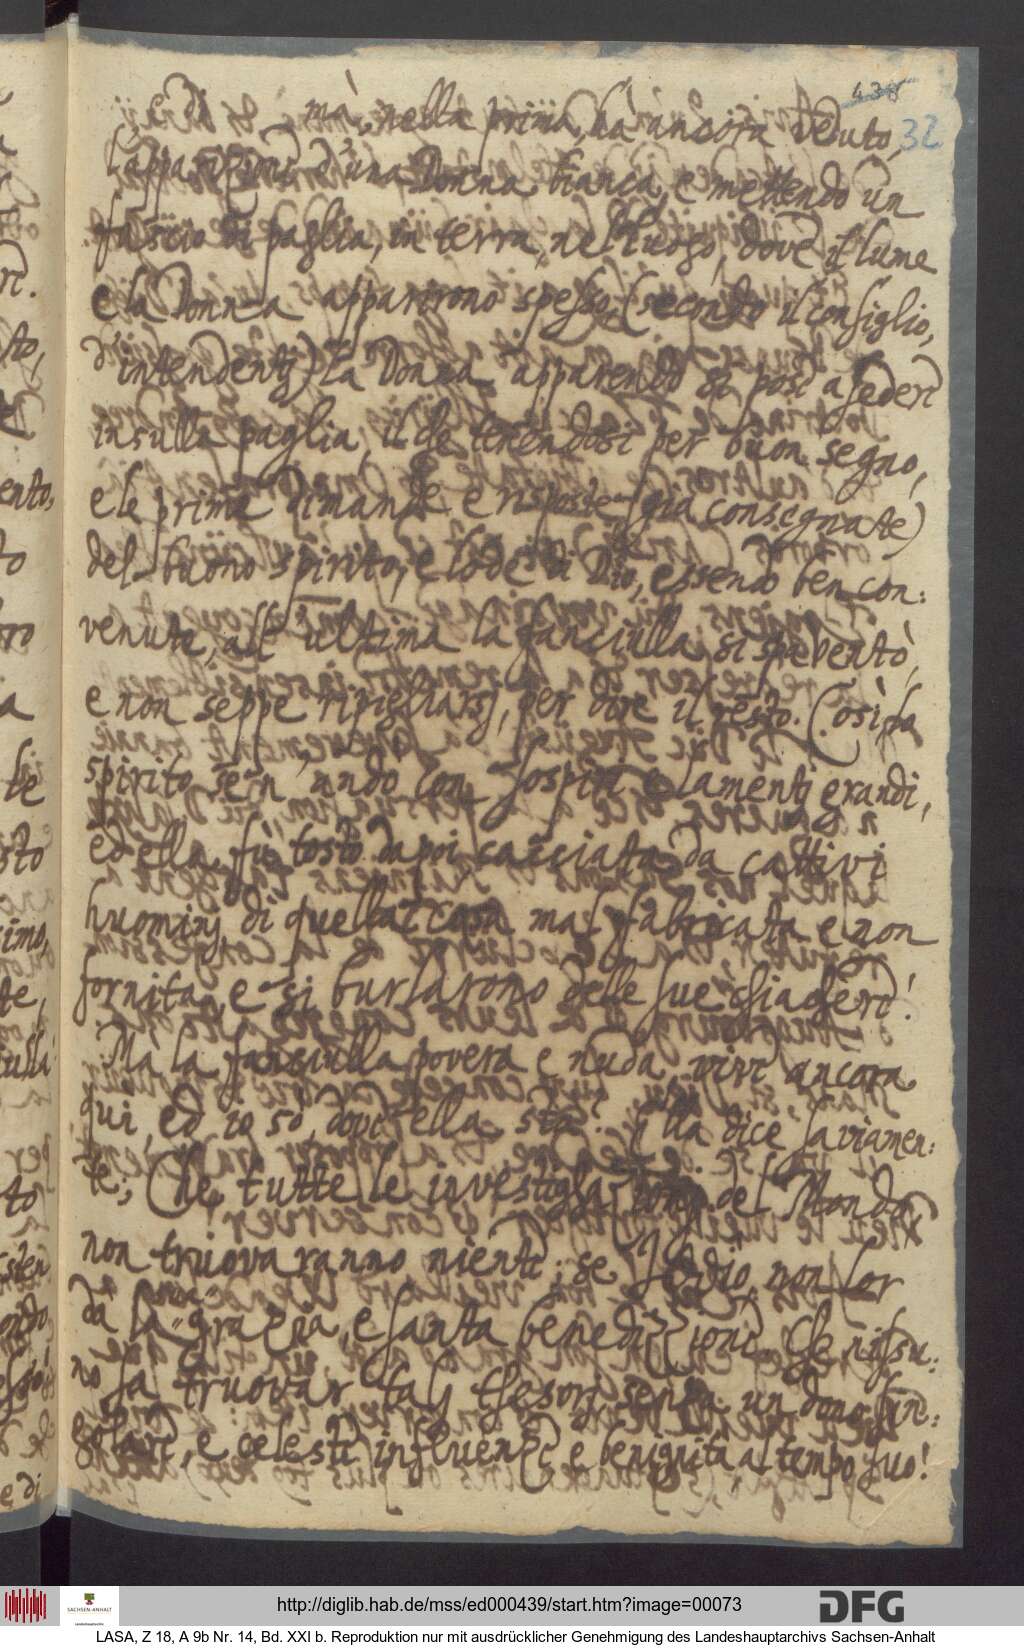 438
32
e di mà, nella prima, ha ancora veduto,
l'apparizione d'una Donna bianca, e mettendo un
fascio di paglia, in terra, nel luogo, dove il lume
e la Donna apparirono spesso, (secondo il consiglio,
d'intendenti) la Donna apparendo si pose a sedere
in sulla paglia, il che tenendosi per buon segno,
e le prime dimande e risposte (già consegnate)
del buono spirito, e lode di Dio, essendo ben con:
venute, all'ultima la fanciulla si spaventò,
e non seppe ripigliarsj, per dire il resto. Così la
spirito se n'andò con sospiri e lamentj grandi,
ed ella fù tosto dapoi cacciata da cattivi
huominj di quella casa mal fabricata e non
fornita, e si burlarono delle sue chiachere!
Ma la fanciulla povera e nuda vive ancora
qui, ed io sò, dove ella stà. Ella dice savianen:
te, Che tutte le investigazionj del Mondo
non truovaranno niente, se Iddio non lor
dà la grazia, e santa benedizzione. Che nissu:
no sa truovar talj thesorj senza un dono sin:
golare, e celeste influenze e benignità al tempo suo!
ento,
to
e di
http://diglib.hab.de/mss/ed000439/start.htm?image=00073
SACHSEN-ANHALT
DFG
LASA, Z 18, A 9b Nr. 14, Bd. XXI b. Reproduktion nur mit ausdrücklicher Genehmigung des Landeshauptarchivs Sachsen-Anhalt